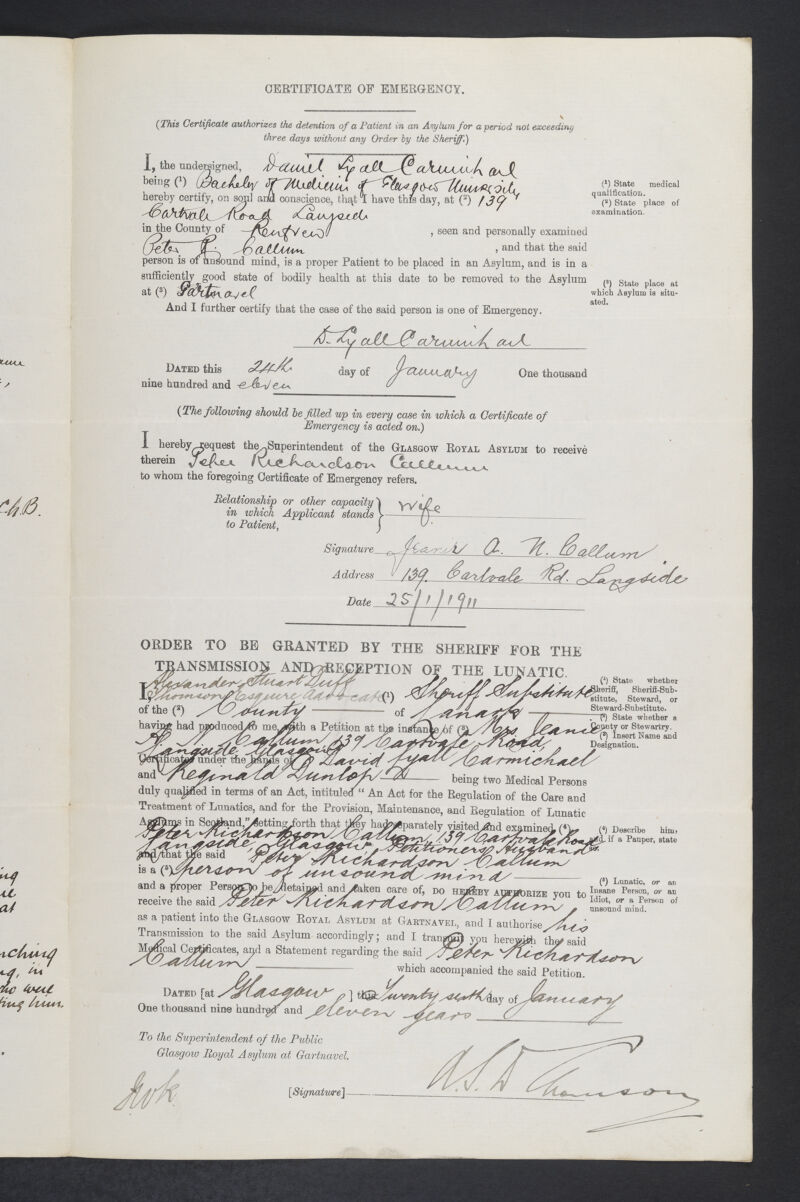 CERTIFICATE OF EMERGENCY.
(This Certificate authorizes the detention of a Patient in an Asylum for a period not exceeding
three days without any Order by the Sheriff.)
I, the undersigned, Daniel Lyall Carmichael
being (¹) Bachelor of Medicine of Glasgow University
hereby certify, on soul and conscience, that I have this day, at (²) 139
Cartvale Road Langside
in the County of Renfrew , seen and personally examined
Peter R. Callum , and that the said
person is of unsound mind, is a proper Patient to be placed in an Asylum, and is in a
sufficiently good state of bodily health at this date to be removed to the Asylum
at (³) Gartnavel
And I further certify that the case of the said person is one of Emergency.
(¹) State medical
qualification.
(²) State place of
examination.
(³) State place at
which Asylum is situ-
ated.
D. Lyall Carmichael
DATED this 24th day of January One thousand
nine hundred and eleven
(The following should be filled up in every case in which a Certificate of
Emergency is acted on.)
I hereby request the Superintendent of the GLASGOW ROYAL ASYLUM to receive
therein Peter Richardson Callum
to whom the foregoing Certificate of Emergency refers.
Relationship or other capacity
in which Applicant stands
to Patient,
Wife
Signature Jeanie A. N. Callum
Address 139 Cartvale Rd. Langside
Date 25/1/1911
ORDER TO BE GRANTED BY THE SHERIFF FOR THE
TRANSMISSION AND RECEPTION OF THE LUNATIC.
Alexander Stuart Duff
I, Thomson Esquire Advocate (¹) Sheriff Substitute
of the (²) County of Lanark
having had produced to me, with a Petition at the instance of (³) Mrs Jeanie
A. N. Callum 139 Cartvale Road,
Langside, Glasgow
Certificates under the hands of David Lyall Carmichael
and Reginald Dunlop being two Medical Persons
duly qualified in terms of an Act, intituled "An Act for the Regulation of the Care and
Treatment of Lunatics, and for the Provision, Maintenance, and Regulation of Lunatic
Asylums in Scotland," setting forth that they had separately visited and examined (⁴)
Peter Richardson Callum, 139 Cartvale Road
Langside, Glasgow, Petitioner's Husband
and that the said Peter Richardson Callum
is a (⁵) person of unsound mind
and a proper Person to be detained and taken care of, DO HEREBY AUTHORIZE you to
receive the said Peter Richardson Callum
as a patient into the GLASGOW ROYAL ASYLUM at GARTNAVEL, and I authorise his
Transmission to the said Asylum accordingly; and I transmit you herewith the said
Medical Certificates, and a Statement regarding the said Peter Richardson
Callum which accompanied the said Petition.
(¹) State whether
Sheriff, Sheriff-Sub-
stitute, Steward, or
Steward-Substitute.
(²) State whether a
County or Stewartry.
(³) Insert Name and
Designation.
(⁴) Describe him,
and, if a Pauper, state
so.
(⁵) Lunatic, or an
Insane Person, or an
Idiot, or a Person of
unsound mind.
DATED [at Glasgow ] the Twenty sixth day of January
One thousand nine hundred and eleven years
To the Superintendent of the Public
Glasgow Royal Asylum at Gartnavel.
[Signature] A. S. D Thomson
Ch.B.